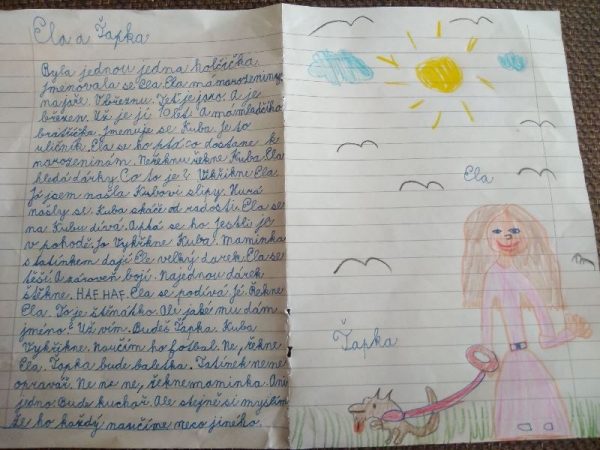 Ela a Ťapka
Byla jednou jedna holčička
jmenovala se Ela. Ela má narozeniny
na jaře. V březnu. Teď je jaro. A je
březen. Už je jí 10 let. A má mladčího
bratříčka. Jmenuje se Kuba. Je to
uličník. Ela se ho ptá co dostane k
narozeninám. Neřeknu řekne Kuba. Ela
hledá dárky. Co to je? Vikřikne Ela.
Já jsem našla Kubovi slipy. Hurá
našly si. Kuba skáče od radosti. Ela se
na Kubu dívá. A ptá se ho. Jestli je
v pohodě. Jo Vykřikne Kuba. Maminka
s tatínkem dají Ele velký darek. Ela se
těší. A zároveň bojí. Najednou dárek
štěkne. HAF HAF. Ela se podívá jé. Řekne
Ela. To je štěnátko. Ale jaké mu dám
jméno? Už vím. Budeš Ťapka. Kuba
Vykřikne. Naučím ho fotbal. Ne, řekne
Ela. Ťapka bude baletka. Tatínek ne ne
opravář. Ne ne ne, řekne maminka. Ani
jedno. Bude kuchař. Ale stejně si myslím
že ho každý naučíme neco jiného.
Ela
Ťapka